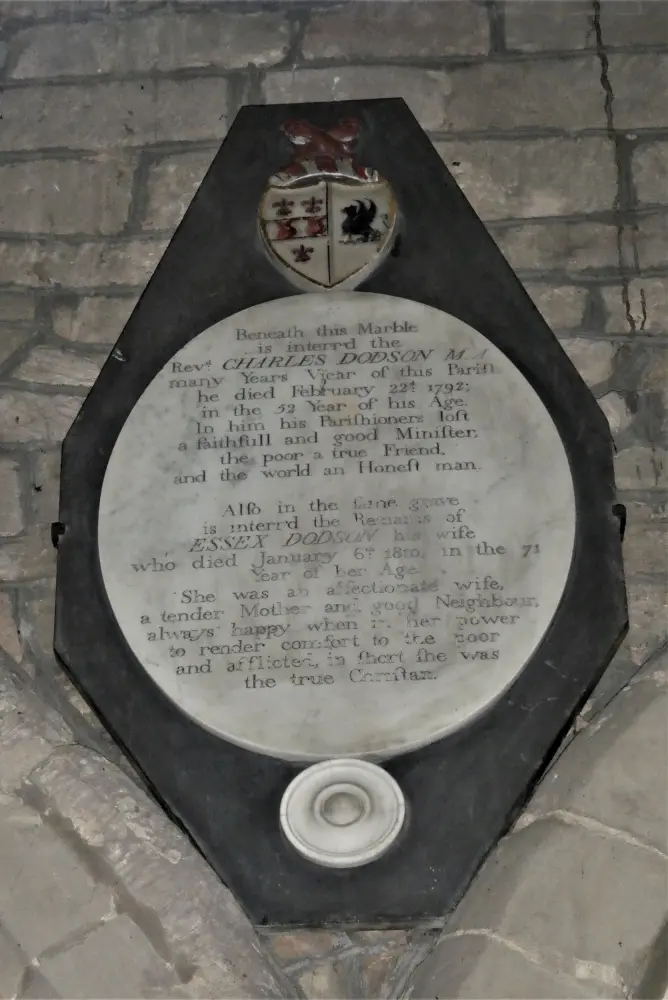 Beneath this Marble
is interr'd the
Revd. CHARLES DODSON M A
many Years Vicar of this Parish
he died February 22d. 1792;
in the 52 Year of his Age.
In him his Parishioners lost
a faithfull and good Minister.
the poor a true Friend,
and the world an Honest man.
Also in the same grave
is interr'd the Remains of
ESSEX DODSON his wife
who died January 6th 1810, in the 71
Year of her Age.
She was an affectionate wife,
a tender Mother and good Neighbour,
always happy when in her power
to render comfort to the poor
and afflicted, in short she was
the true Christian.